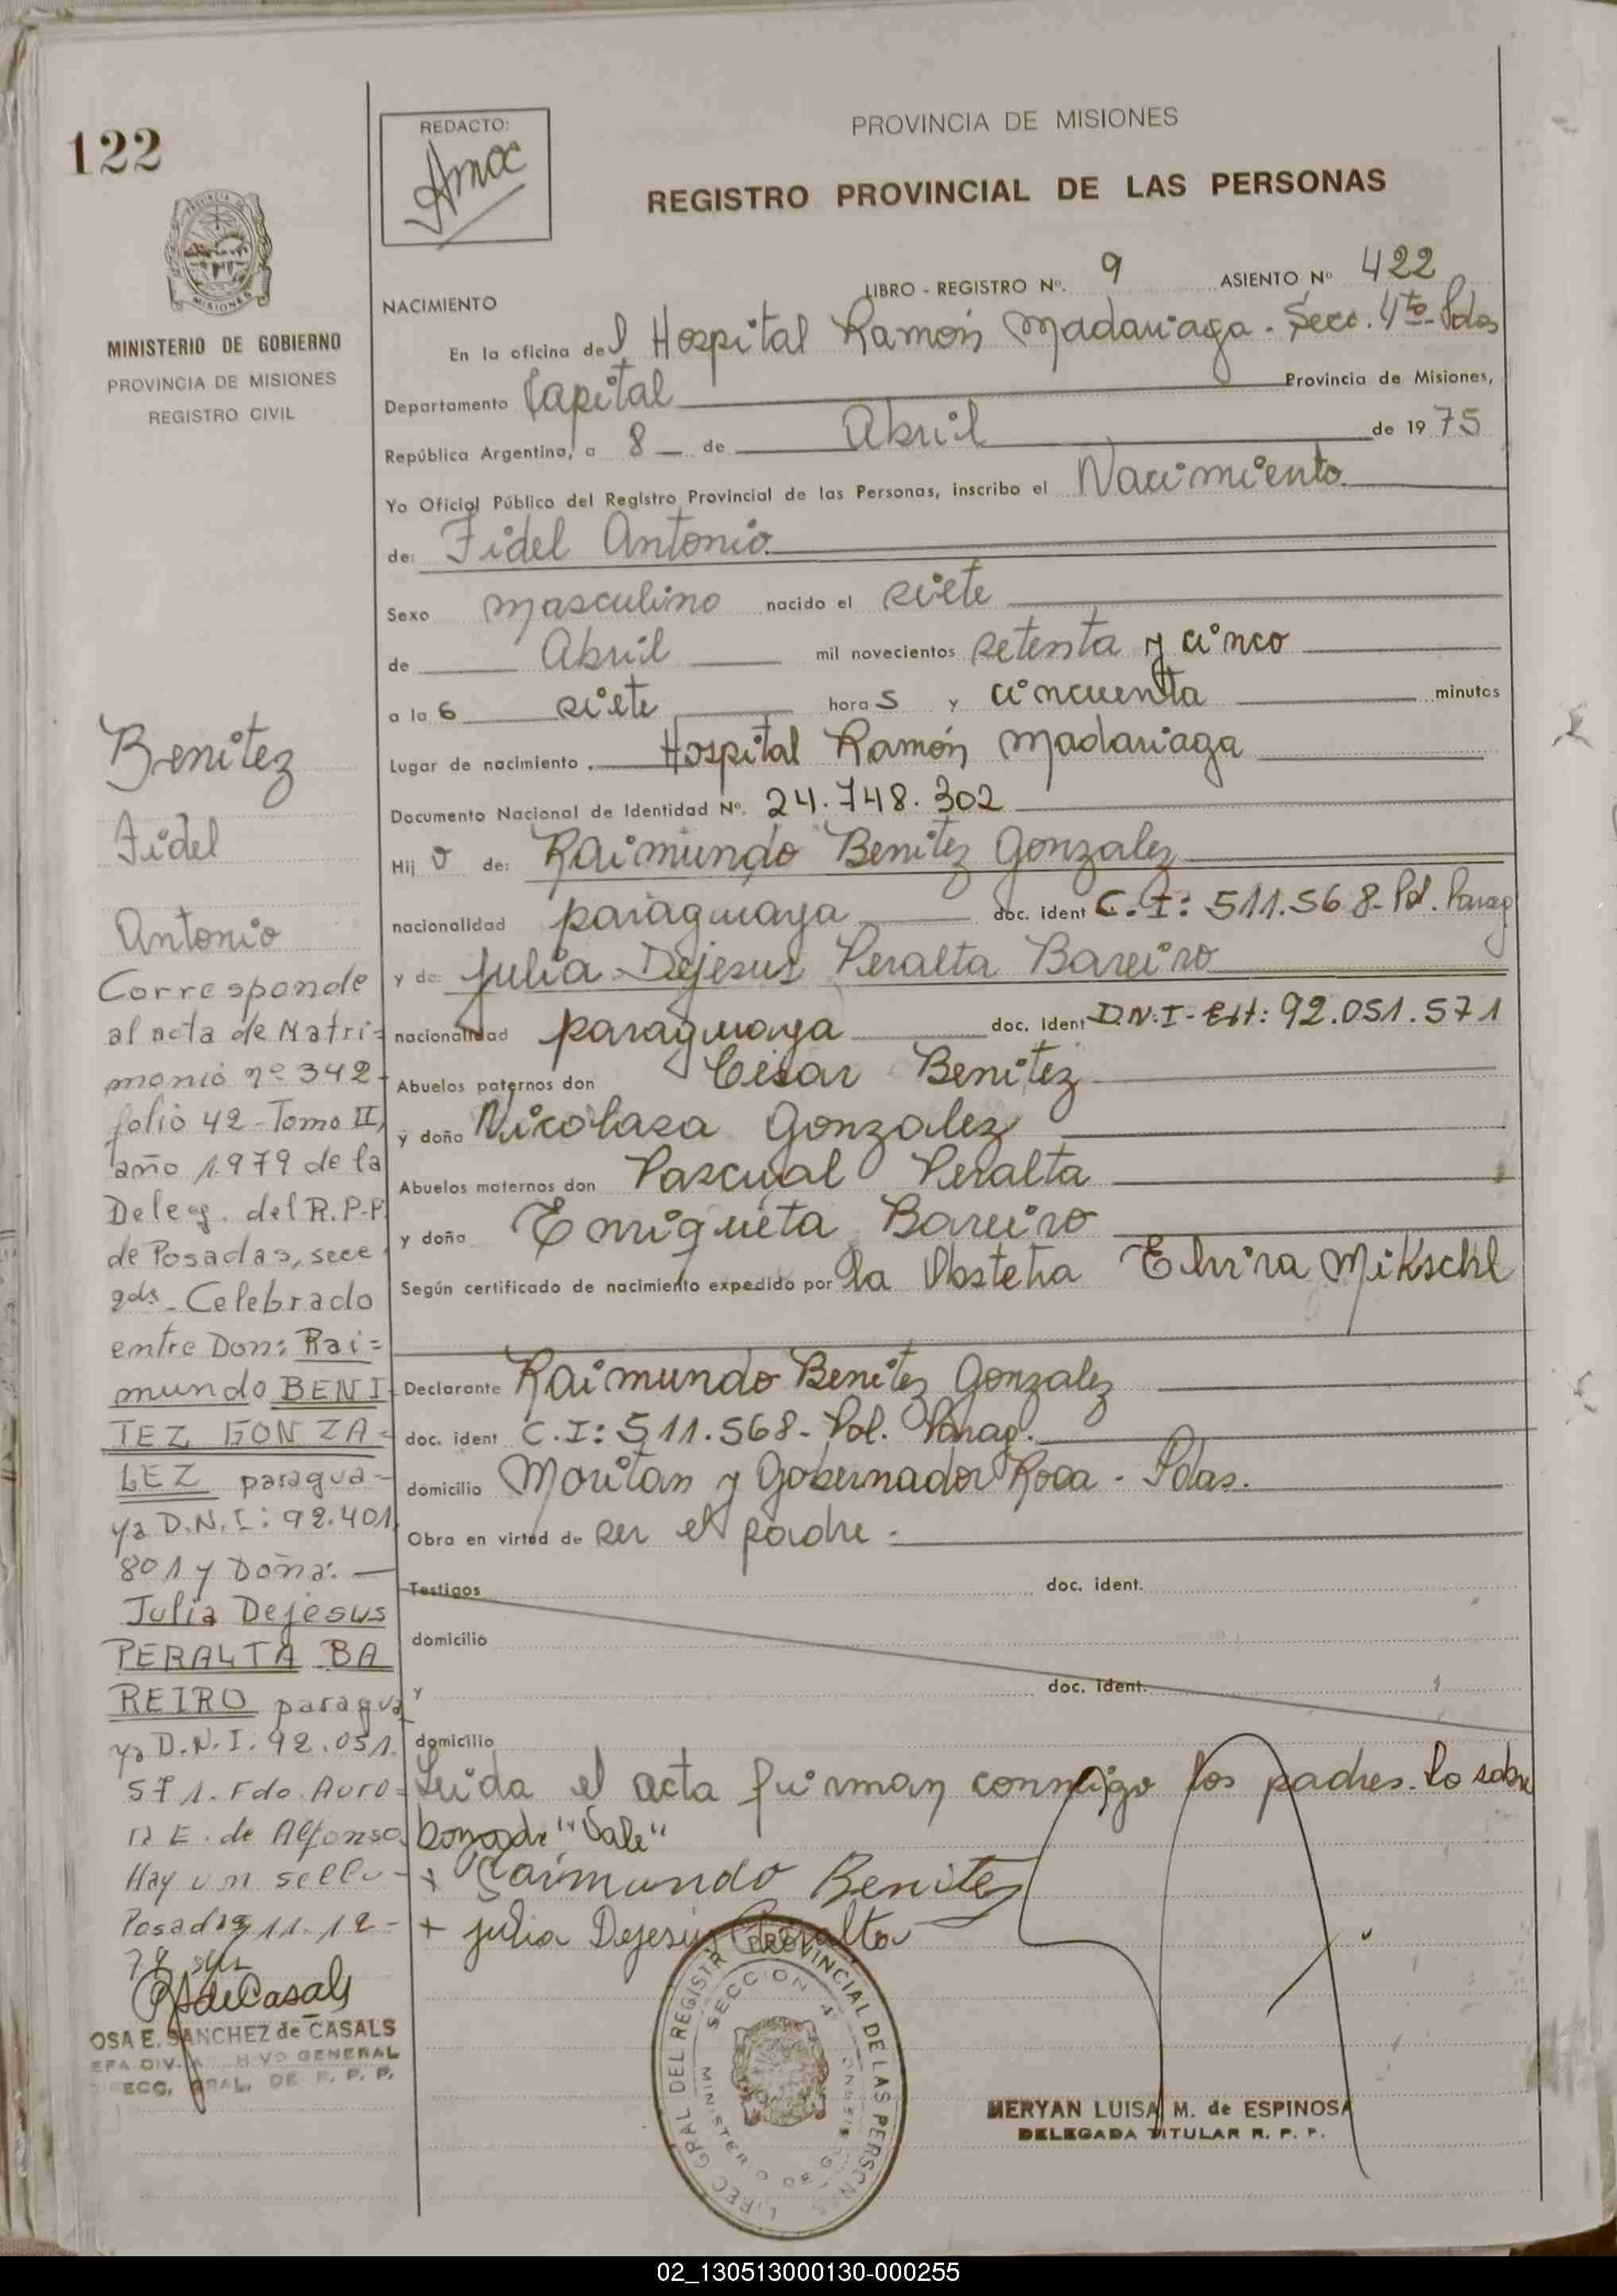 122
REDACTO:
PROVINCIA DE MISIONES
REGISTRO PROVINCIAL DE LAS PERSONAS
MINISTERIO DE GOBIERNO
PROVINCIA DE MISIONES
REGISTRO CIVIL
LIBRO - REGISTRO Nº. 9 ASIENTO Nº 422
NACIMIENTO
En la oficina del Hospital Ramón Madariaga. Secc. 4to. Pdas
Departamento Capital Provincia de Misiones,
República Argentina, a 8 de Abril de 1975
Yo Oficial Público del Registro Provincial de las Personas, inscribo el Nacimiento
de: Fidel Antonio
Sexo masculino nacido el siete
de Abril mil novecientos setenta y cinco
a las siete horas y cincuenta minutos
Lugar de nacimiento Hospital Ramón Madariaga
Documento Nacional de Identidad Nº. 24.748.302
Hijo de: Raimundo Benitez Gonzalez
nacionalidad paraguaya doc. ident C.I: 511.568- Pol. Parag
y de: Julia Dejesus Peralta Bareiro
nacionalidad paraguaya doc. ident D.N.I- Ext: 92.051.571
Abuelos paternos don César Benitez
y doña Nicolasa Gonzalez
Abuelos maternos don Pascual Peralta
y doña Enriqueta Bareiro
Según certificado de nacimiento expedido por la Obstetra Elvira Mikschl
Declarante Raimundo Benitez Gonzalez
doc. ident C.I: 511.568- Pol. Parag.
domicilio Moritan y Gobernador Roca - Pdas.
Obra en virtud de ser el padre.
Testigos doc. ident.
domicilio
y doc. ident.
domicilio
Leida el acta firman conmigo los padres. Lo sobre
borrado "Vale"
+ Raimundo Benitez
+ Julia Dejesús Peralta
Benitez
Fidel
Antonio
Corresponde
al acta de Matri=
monio nº 342-
folio 42 - Tomo II,
año 1.979 de la
Deleg. del R.P.P.
de Posadas, secc
2da. Celebrado
entre Don: Rai=
mundo BENI
TEZ GONZA=
LEZ paragua-
ya D.N.I: 92.401.
801 y Doña: -
Julia Dejesus
PERALTA BA
REIRO paragua
ya D.N.I. 92.051.
571. Fdo. Auro=
ra E. de Alfonso.
Hay un sello -
Posadas 11.12-
79
OSA E. SANCHEZ de CASALS
EFA DIV. HIVO GENERAL
ECC. GRAL. DE R. P. P.
DIREC GRAL DEL REGISTRO PROVINCIAL DE LAS PERSONAS
SECCION 4ª
MINISTERIO DE GOBIERNO
MERYAN LUISA M. de ESPINOSA
DELEGADA TITULAR R. P. P.
02_130513000130-000255